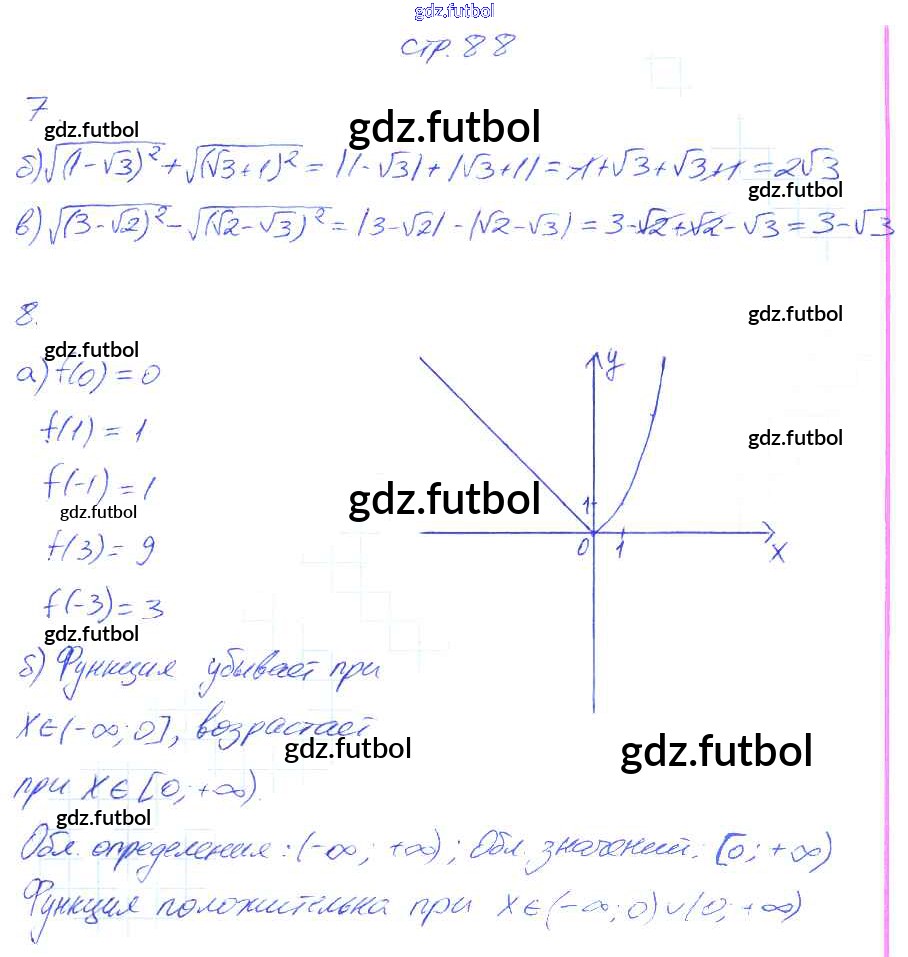 gdz.futbol
стр. 88
7.
gdz.futbol
gdz.futbol
б) √(1-√3)² + √(√3+1)² = |1-√3| + |√3+1| = -1+√3+√3+1 = 2√3
gdz.futbol
в) √(3-√2)² - √(√2-√3)² = |3-√2| - |√2-√3| = 3-√2+√2-√3 = 3-√3
8.
gdz.futbol
gdz.futbol
а) f(0) = 0
y
f(1) = 1
gdz.futbol
f(-1) = 1
gdz.futbol
1
gdz.futbol
f(3) = 9
0 1 x
f(-3) = 3
gdz.futbol
б) Функция убывает при
x∈(-∞; 0], возрастает
gdz.futbol
gdz.futbol
при x∈[0; +∞).
gdz.futbol
Обл. определения: (-∞; +∞); Обл. значений: [0; +∞)
Функция положительна при x∈(-∞; 0)∪(0; +∞)